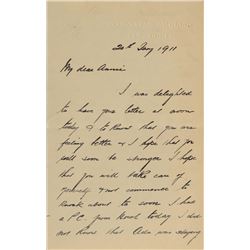 20th Jany 1911
My dear Annie
I was delighted
to have your letter at noon
today & to know that you are
feeling better & I hope that you
will soon be stronger I hope
that you will take care of
yourself & not commence to
work about to soon I had
a P.C. from today I did
not know that Ada was